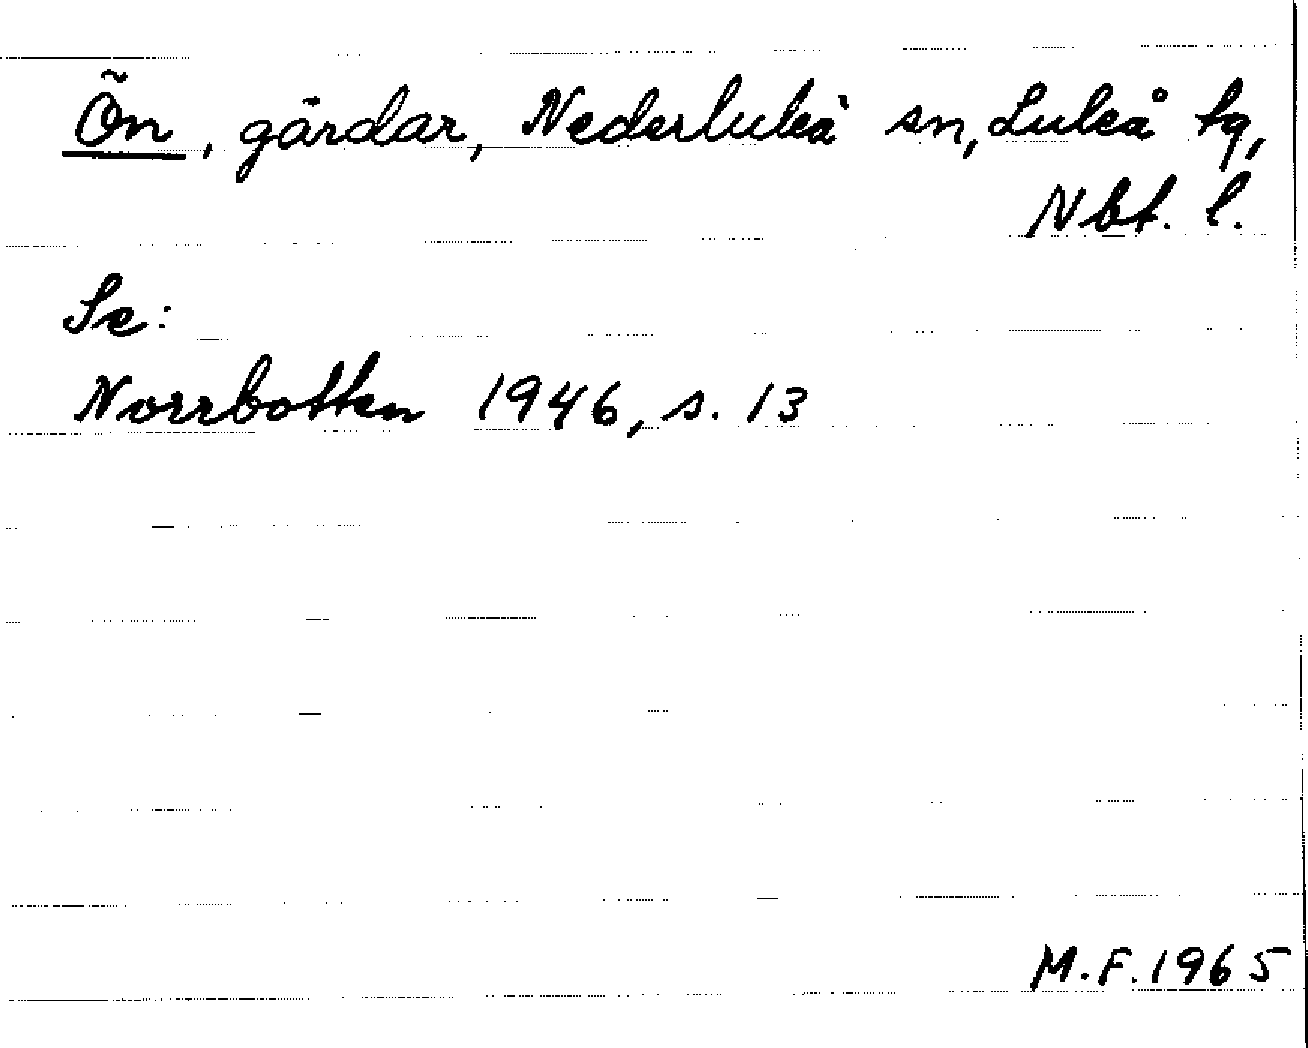 Ön, gårdar, Nederluleå sn, Luleå tg,
Nbt. l.
Se:
Norrbotten 1946, s. 13
M.F. 1965